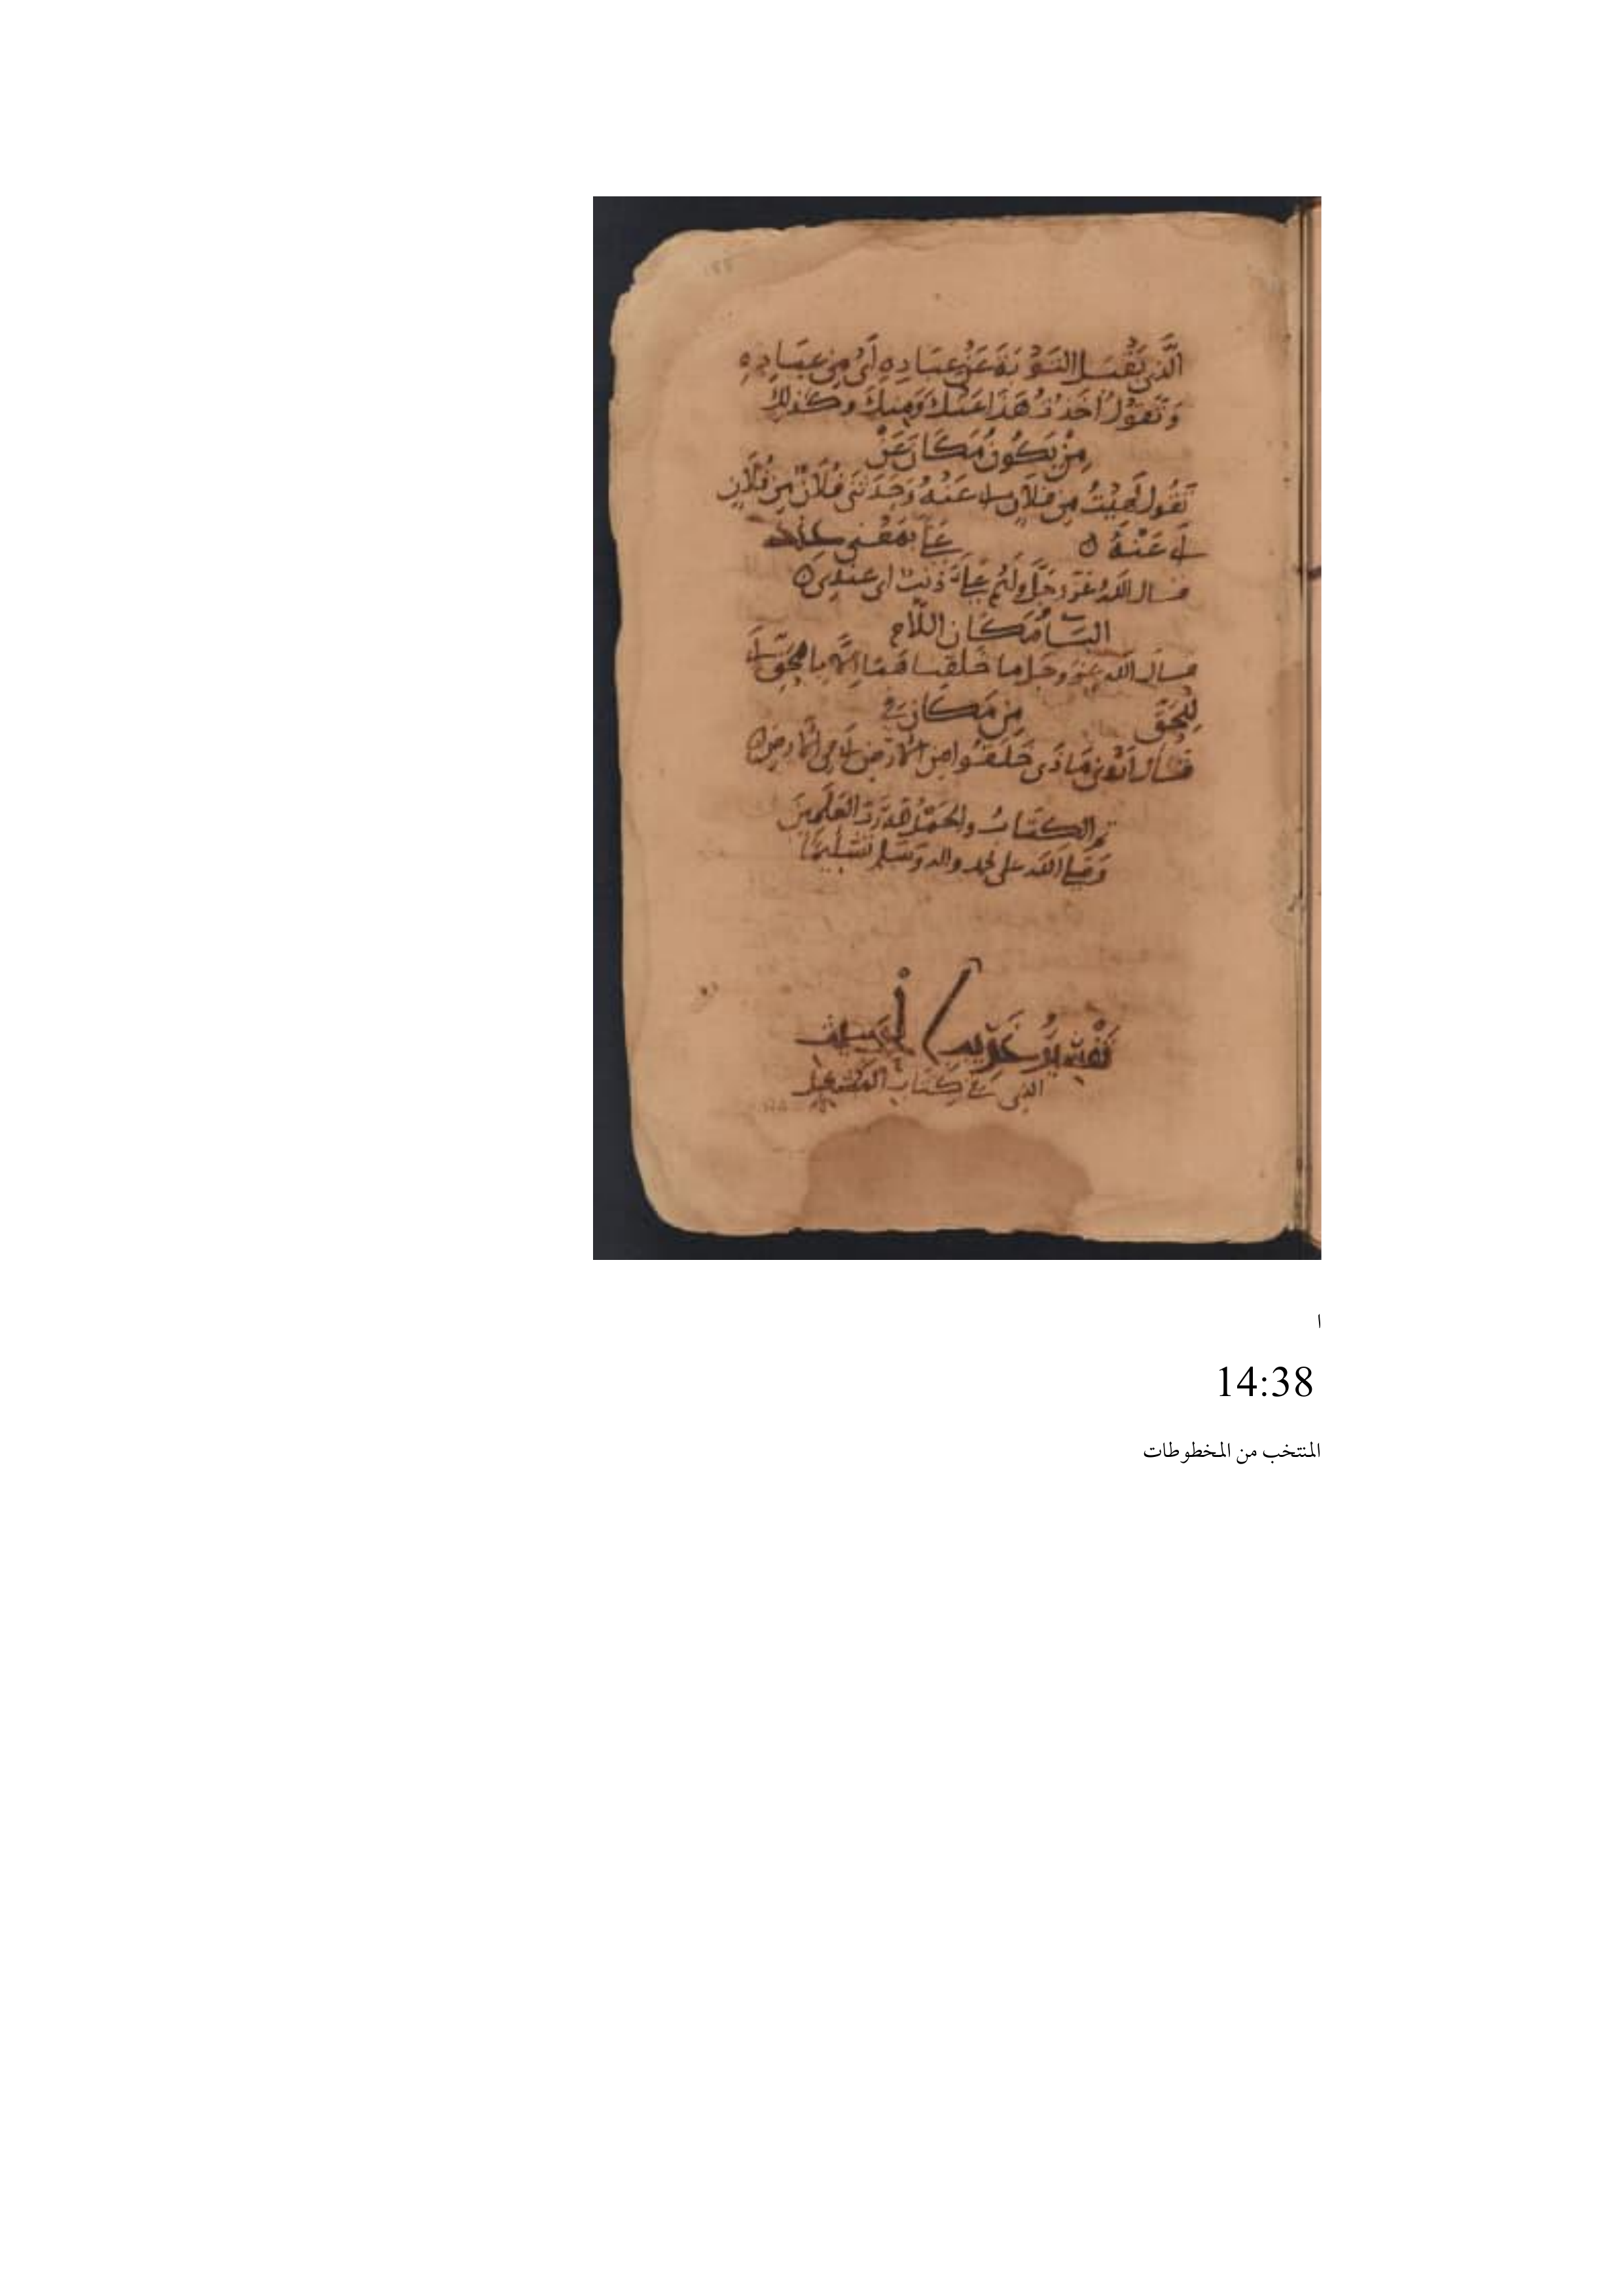 الَّذِي يَقْبَل التَّوْبَةَ عَنْ عِبَادِهِ أَيْ مِن عِبَادِهِ
وَتَقُولُ أَخَذْتُ هَذَا عَنْكَ وَمِنْكَ وكذلك
مِنْ يَكُونُ مَكَانَ عَنْ
تَقُول لَهِيْتُ مِن فلان أي عَنْهُ وَحَدَّثَنِي فُلَانٌ مِن فُلَانٍ
أي عَنْهُ عَلَى بمَعْنى عند
قال اللهُ عَزّ وجَلَّ ولَهُم عَلَيَّ ذنب أي عندي
البَاءُ مَكَان اللَّام
قال الله عزّ وجل ما خَلَقْنَاهُمَا إِلَّا بِالْحَقِّ أي
لِلْحَقِّ مِن مَكَان في
قال أَرُونِي مَاذَى خَلَقُوا مِن الأَرْضِ أي في الأرض
تم الكِتَابُ والحَمْدُ لله رَبّ العَلَمِينَ
وَصَلى الله على محمد واله وَسَلم تَسْلِيمًا
تَفْسِيرُ غَرِيبِ
الذي في كِتَاب
ا
14:38
المنتخب من المخطوطات